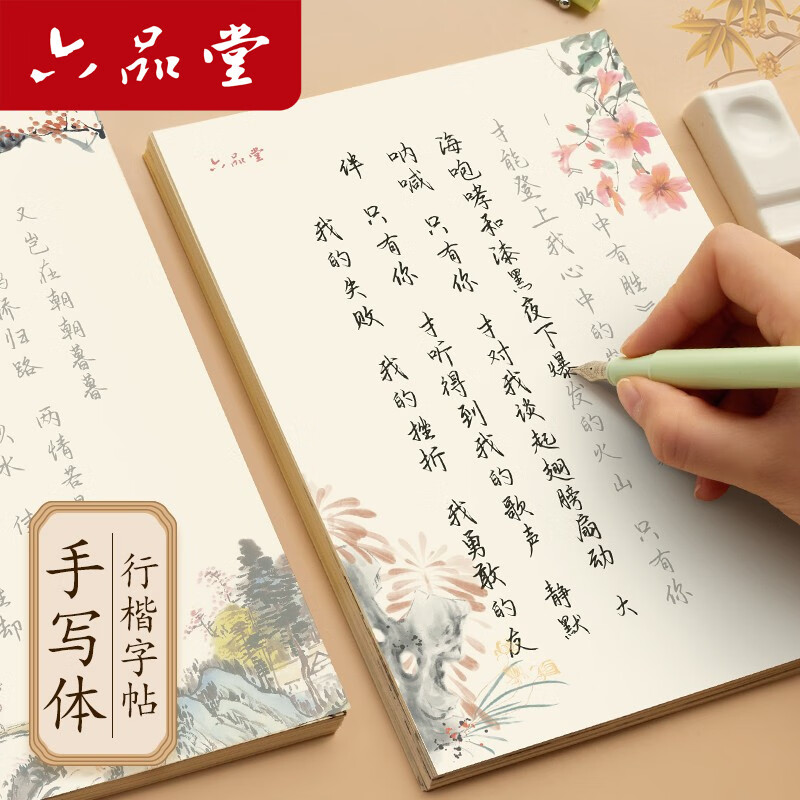 六品堂
六品堂
我的失败 我的挫折 我勇敢的友
伴 只有你 才听得到我的歌声 静默
呐喊 只有你 才对我谈起翅膀扇动 大
海咆哮和漆黑夜下爆发的火山 只有你
才能登上我心中的
《败中有胜》
又岂在朝朝暮暮
桥归路 两情若
水
却
手写体
行楷字帖